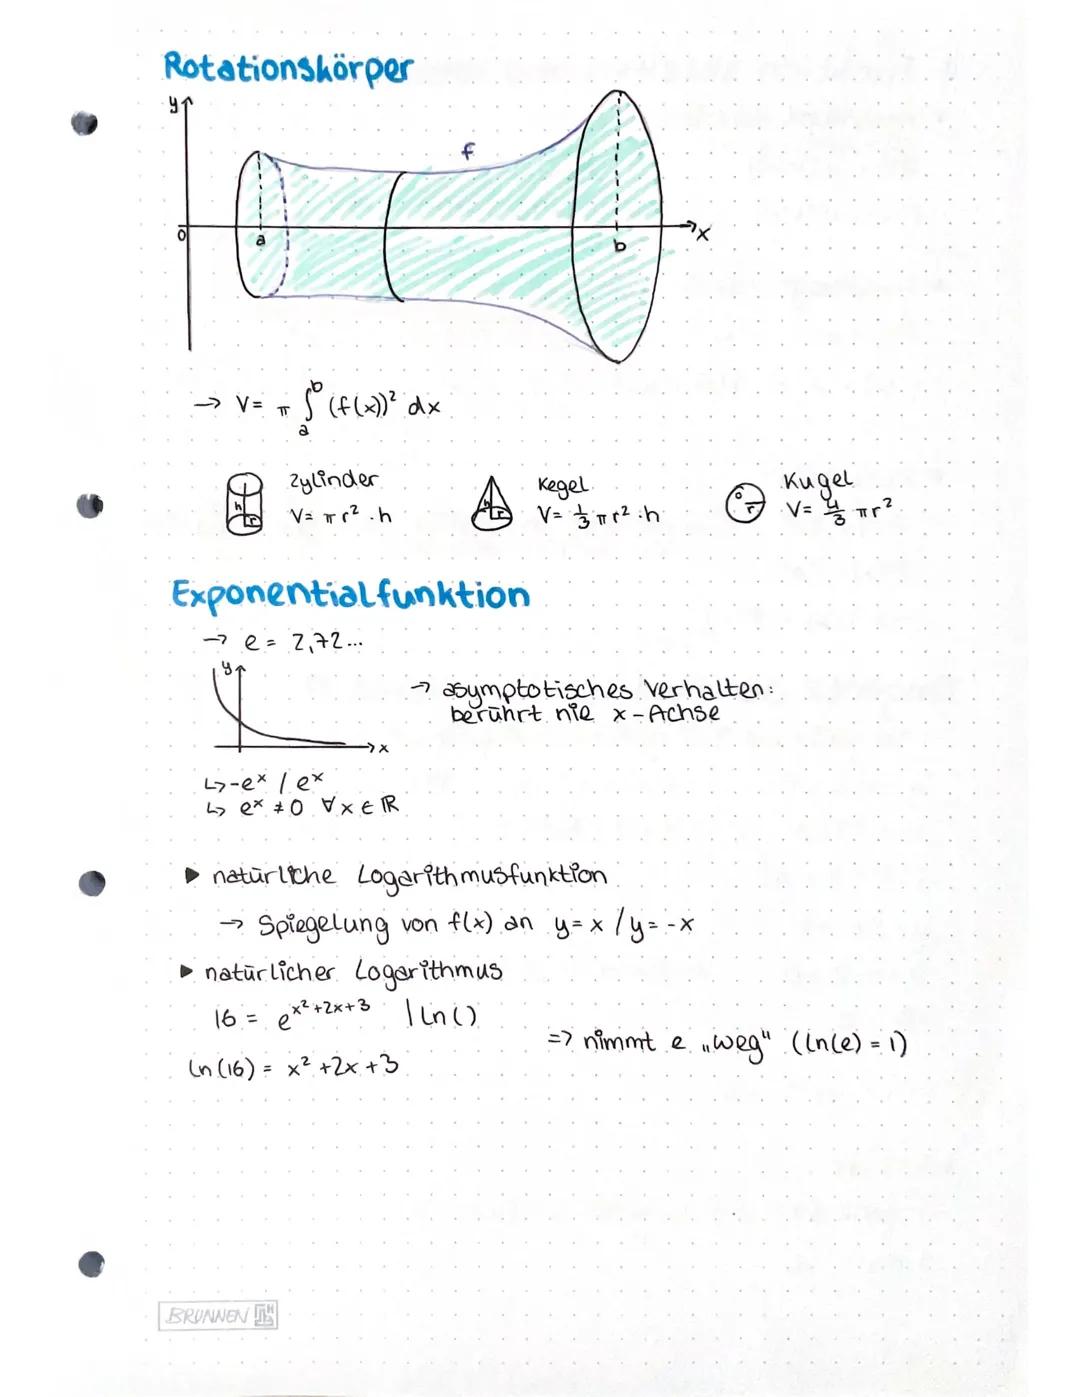 Rotationskörper
y
f
0
a
b
x
→ V = π ∫ₐᵇ (f(x))² dx
Zylinder
V = π r² · h
h
r
Kegel
V = 1/3 π r² · h
h
r
Kugel
V = 4/3 π r²
r
Exponentialfunktion
→ e = 2,72...
y
x
→ asymptotisches Verhalten:
berührt nie x-Achse
↳ -eˣ / eˣ
↳ eˣ ≠ 0 ∀ x ∈ ℝ
▶ natürliche Logarithmusfunktion
→ Spiegelung von f(x) an y = x / y = -x
▶ natürlicher Logarithmus
16 = e^(x²+2x+3) | ln()
ln(16) = x² + 2x + 3
=> nimmt e „weg" (ln(e) = 1)
BRUNNEN